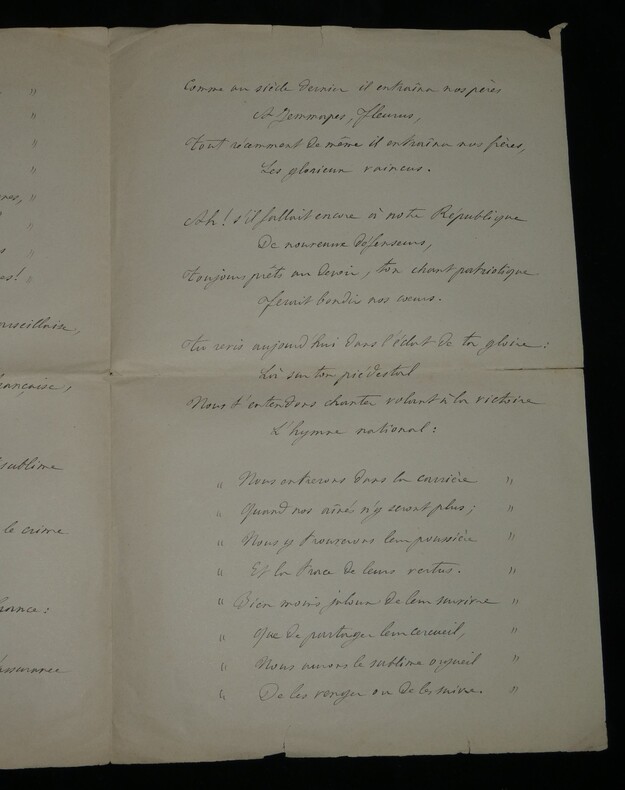 "
"
"
"
res, "
"
"
es! "
arseillaise,
rançaise,
sublime
le crime
France:
Comme au siècle dernier il entraîna nos pères
A Jemmapes, Fleurus,
Tout récemment de même il entraîna nos frères,
Les glorieux vaincus.
Ah! s'il fallait encore à notre République
De nouveaux défenseurs,
Toujours prêts au devoir, ton chant patriotique
Ferait bondir nos cœurs.
Tu vis aujourd'hui dans l'éclat de ta gloire:
Là sur ton piédestal
Nous t'entendons chanter volant à la victoire
L'hymne national:
" Nous entrerons dans la carrière "
" Quand nos aînés n'y seront plus; "
" Nous y trouverons leur poussière "
" Et la trace de leurs vertus. "
" Bien moins jaloux de leur survivre "
" Que de partager leur cercueil, "
" Nous aurons le sublime orgueil "
" De les venger ou de les suivre. "